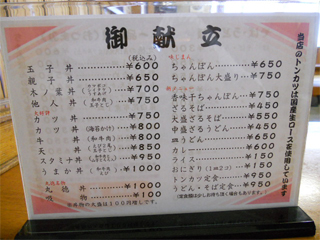 御献立
(税込み)
玉子丼 ¥600
親子丼 ¥650
木ノ葉丼 ¥700
他人丼 ¥750
カツ丼 ¥750
カツ丼 ¥800
牛丼 ¥800
天丼 ¥850
スタミナ丼 ¥950
うまか丼 ¥1000
丸 ¥1000
吸物 ¥100
ちゃんぽん ¥650
ちゃんぽん大盛り ¥750
香味干ちゃんぽん ¥750
ざるそば ¥550
大盛ざるそば ¥550
中盛ざるうどん ¥450
皿うどん ¥650
カレー ¥650
ライス ¥150
おにぎり(1皿2コ) ¥150
トンカツ定食 ¥950
うどん・そば定食 ¥950
当店のトンカツは国産生ロースを使用しています